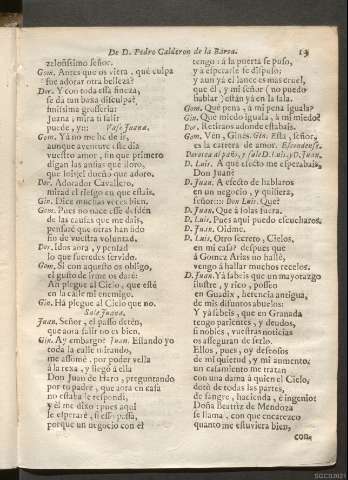 De D. Pedro Calderon de la Barca. 13
zelosissimo señor.
Gom. Antes que os viera, què culpa
fue adorar otra belleza?
Dor. Y con toda essa fineza,
se dà tan baxa disculpa?
finissima grosseria!
Juana, mira si salir
puede, y::: Vase Juana.
Gom. Yà no me he de ir,
aunque aventure este dia
vuestro amor, sin que primero
digan las ansias que lloro,
que sois el dueño que adoro.
Dor. Adorador Cavallero,
mirad el riesgo en que estais.
Gin. Dice muchas veces bien.
Gom. Pues no nace esse desdèn
de las causas que me dais,
pensarè que otras han sido
fin de vuestra voluntad.
Dor. Idos aora, y pensad
lo que fueredes servido.
Gom. Si con aquesto os obligo,
el gusto de irme os darè:
An plegue al Cielo, que estè
en la calle mi enemigo.
Gin. Hà plegue al Cielo que no.
Sale Juana.
Juan. Señor, el passo detèn,
que aora salir no es bien.
Gin. Ay embargo? Juan. Estando yo
toda la calle mirando,
me assomè, por poder vella
à la rexa, y llegò à ella
Don Juan de Haro, preguntando
por tu padre, que aora en casa
no estaba le respondi,
y èl me dixo: pues aqui
le esperarè, si esso passa,
porque un negocio con èl
tengo: à la puerta se puso,
y à esperarle se dispuso;
y aun yà el lance es mas cruel,
que èl, y mi señor (no puedo
hablar) estàn yà en la sala.
Gom. Què pena, à mi pena iguala?
Gin. Què miedo iguala, à mi miedo?
Dor. Retiraos adonde estabais.
Gom. Ven, Ginès. Gin. Esta, señor,
es la carrera de amor. Escondense.
Dorotea al paño, y sale D. Luis, y D. Juan.
D. Luis. A què efecto me esperabais,
Don Juan?
D. Juan. A efecto de hablaros
en un negocio, y quisiera,
señor::: Don Luis. Què?
D. Juan. Que à solas fuera.
D. Luis. Pues aqui puedo escucharos.
D. Juan. Oidme.
D. Luis. Otro secreto, Cielos,
en mi casa? despues que
à Gomez Arias no hallè,
vengo à hallar muchos recelos.
D. Juan. Yà sabeis que un mayorazgo
ilustre, y rico, posseo
en Guadix, herencia antigua,
de mis difuntos abuelos:
Y yà sabeis, que en Granada
tengo parientes, y deudos,
si nobles, vuestras noticias
os asseguran de serlo.
Ellos, pues, oy deseosos
de mi quietud, y mi aumento,
un casamiento me tratan
con una dama à quien el Cielo,
dotò de todas las partes,
de sangre, hacienda, è ingenio:
Doña Beatriz de Mendoza
se llama, con que encarezco
quanto me estuviera bien,
con-